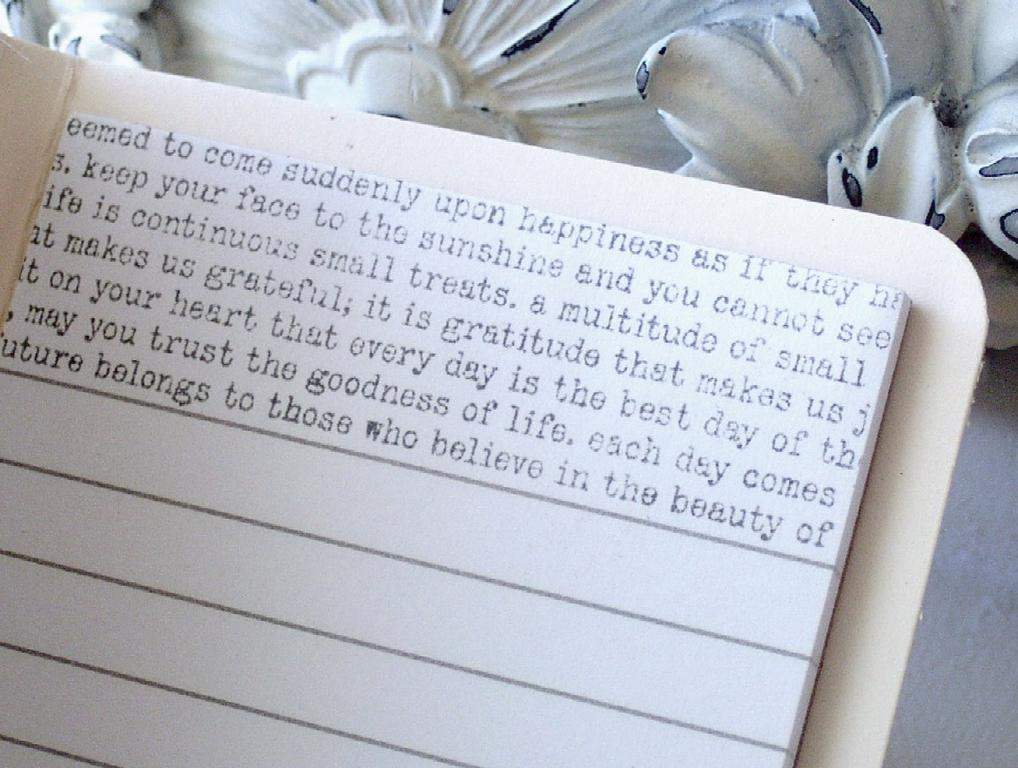 eemed to come suddenly upon happiness as if they ha
s. keep your face to the sunshine and you cannot see
ife is continuous small treats. a multitude of small
at makes us grateful; it is gratitude that makes us j
it on your heart that every day is the best day of th
, may you trust the goodness of life. each day comes
uture belongs to those who believe in the beauty of